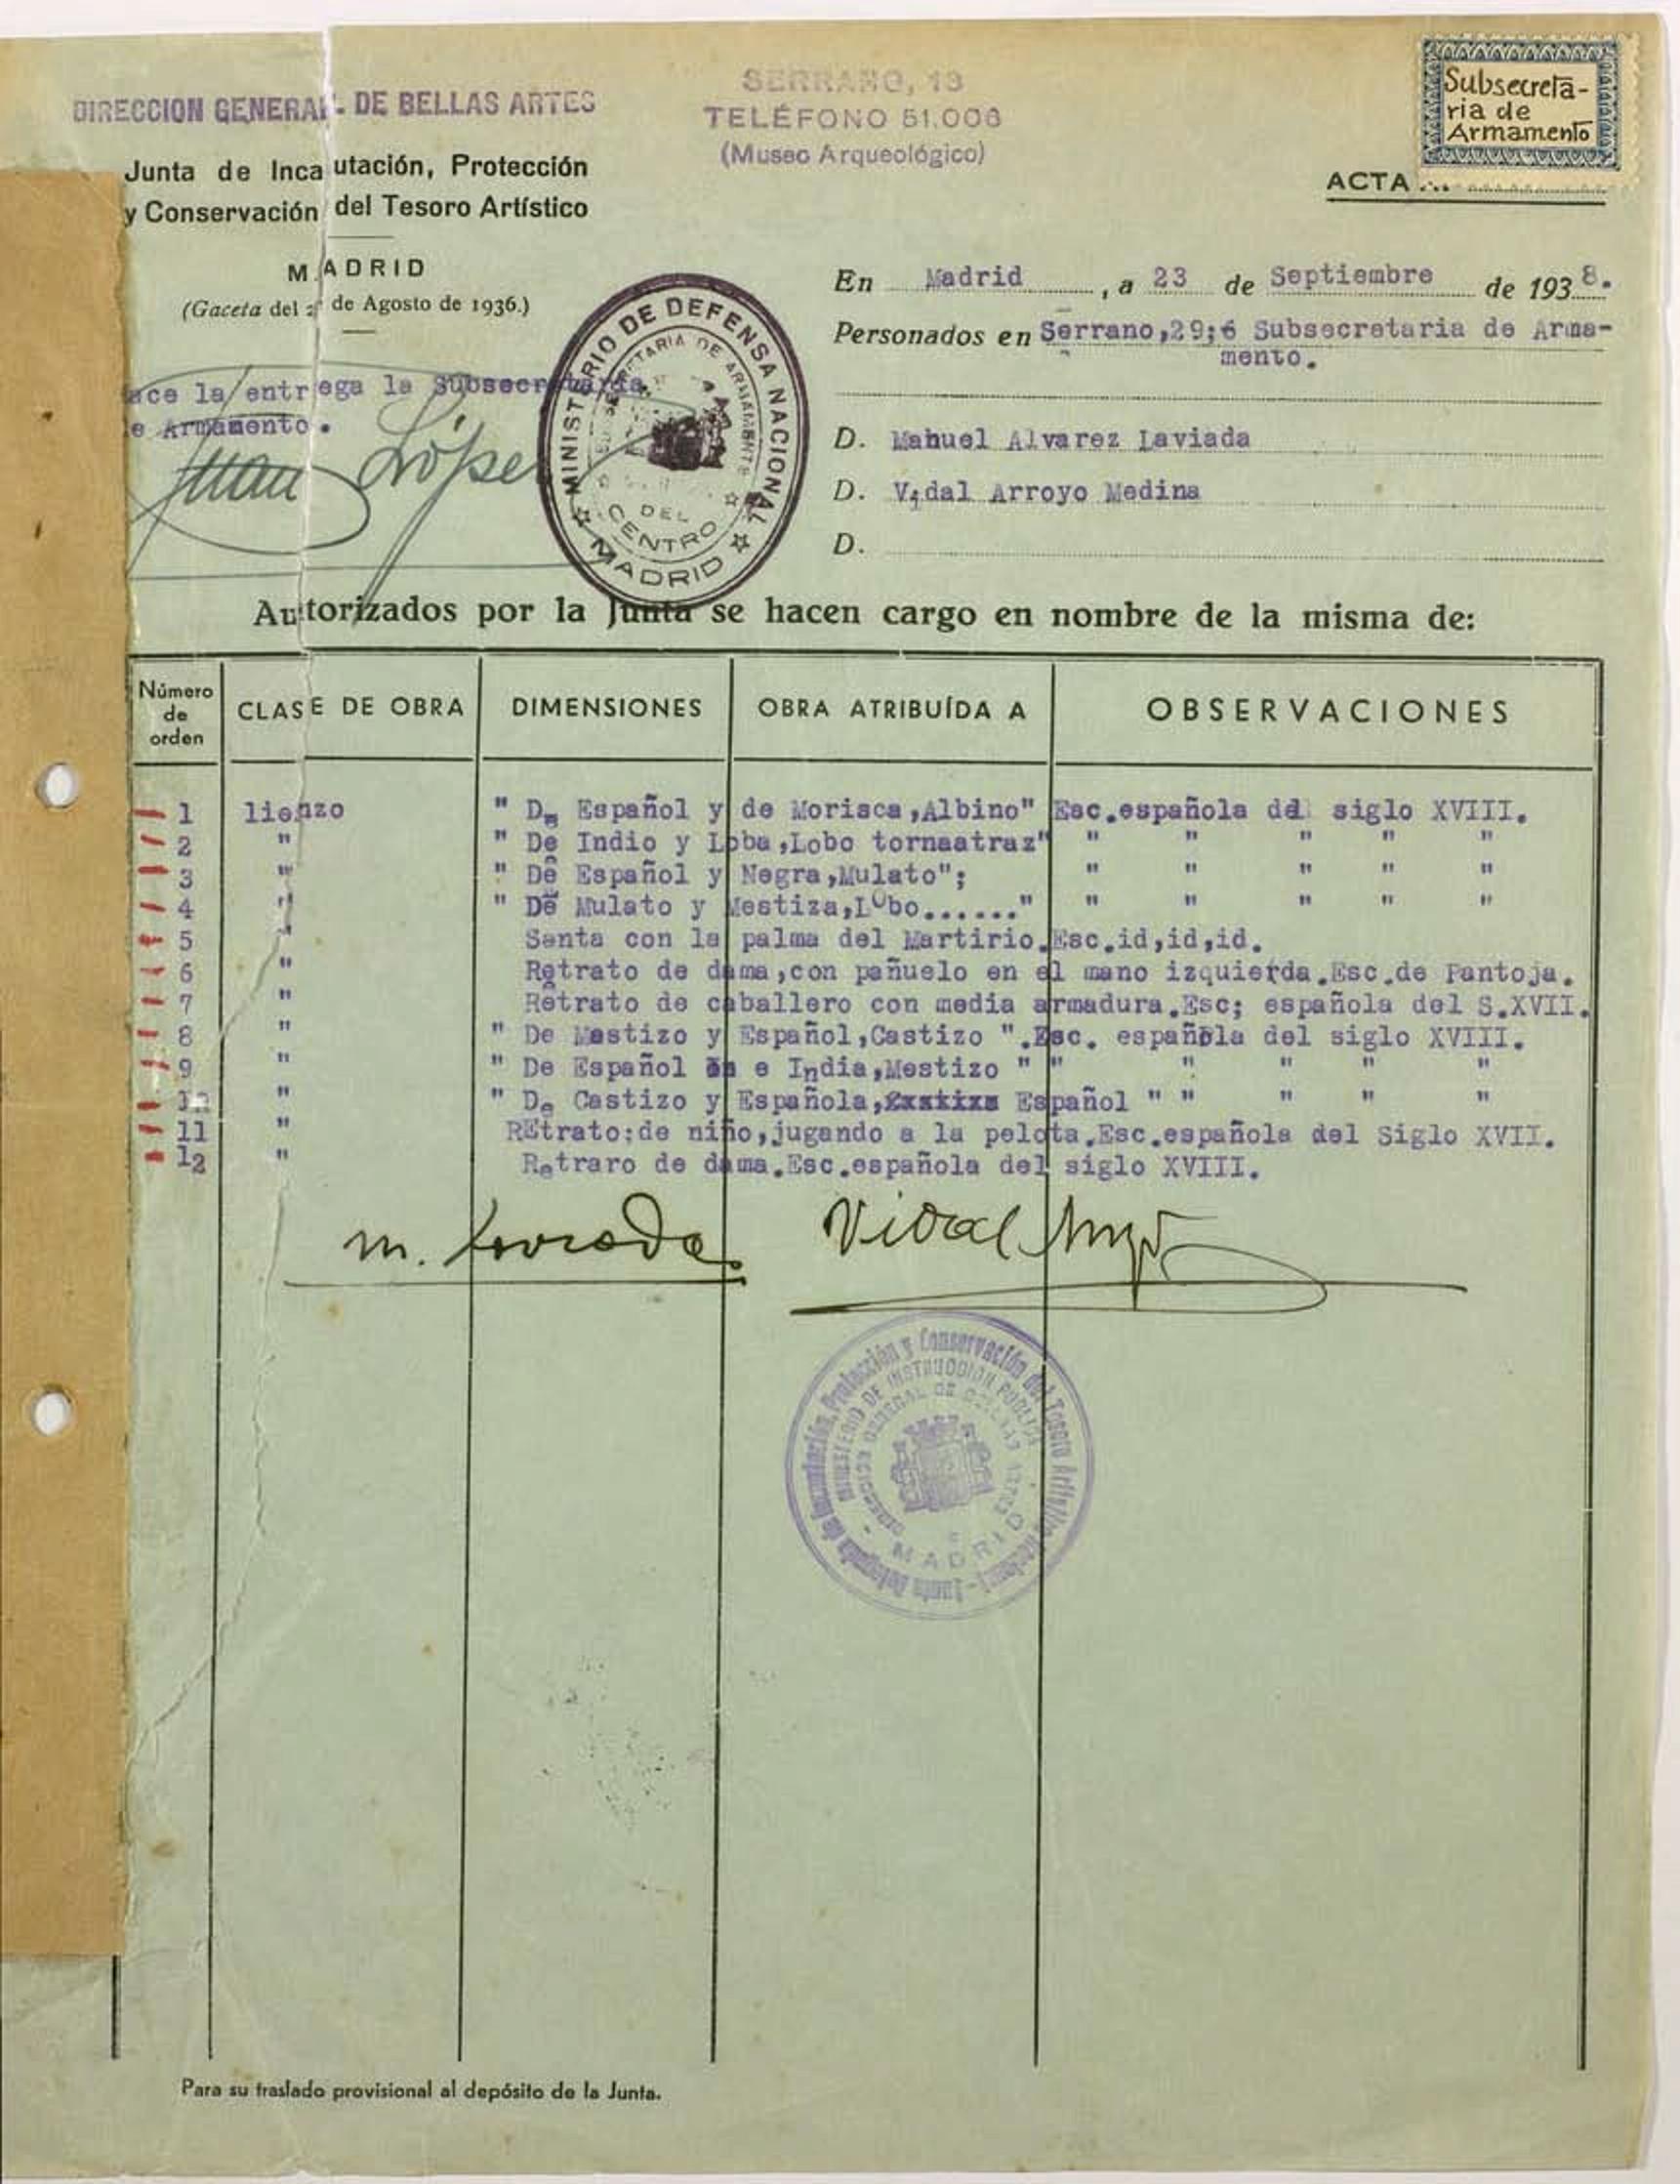 DIRECCION GENERAL DE BELLAS ARTES
SERRANO, 13
TELÉFONO 51.006
(Museo Arqueológico)
Subsecreta-
ria de
Armamento
ACTA
Junta de Incautación, Protección
y Conservación del Tesoro Artístico
MADRID
(Gaceta del de Agosto de 1936.)
En Madrid, a 23 de Septiembre de 1938.
Personados en Serrano,29;6 Subsecretaria de Arma-
mento.
ace la entrega la Subsecretaria
e Armamento.
Juan López
MINISTERIO DE DEFENSA NACIONAL
SUBSECRETARIA DE ARMAMENTO
DEL
CENTRO
MADRID
D. Manuel Alvarez Laviada
D. Vidal Arroyo Medina
D.
Autorizados por la Junta se hacen cargo en nombre de la misma de:
Número de orden CLASE DE OBRA DIMENSIONES OBRA ATRIBUÍDA A OBSERVACIONES
1 lienzo " De Español y de Morisca,Albino" Esc.española del siglo XVIII.
2 " " De Indio y Loba,Lobo tornaatraz" " " " " "
3 " " De Español y Negra,Mulato"; " " " " "
4 " " De Mulato y Mestiza,Lobo......" " " " " "
5 " Santa con la palma del Martirio.Esc.id,id,id.
6 " Retrato de dama,con pañuelo en el mano izquierda.Esc.de Pantoja.
7 " Retrato de caballero con media armadura.Esc; española del S.XVII.
8 " " De Mestizo y Español,Castizo ".Esc. española del siglo XVIII.
9 " " De Español e India,Mestizo " " " " " "
10 " " De Castizo y Española, Español " " " " "
11 " REtrato:de niño,jugando a la pelota.Esc.española del Siglo XVII.
12 " Retraro de dama.Esc.española del siglo XVIII.
m. Laviada Vidal Arroyo
Junta Delegada de Incautación, Protección y Conservación del Tesoro Artístico Nacional
MINISTERIO DE INSTRUCCION PUBLICA
DIRECCION GENERAL DE BELLAS ARTES
MADRID
Para su traslado provisional al depósito de la Junta.